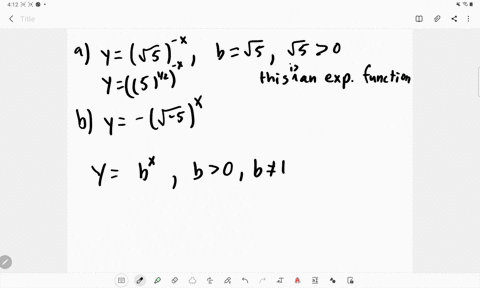 4:12
Title
a) y = (√5)^-x, b = √5, √5 > 0
y = ((5)^1/2)^-x this is an exp. function
b) y = -(√-5)^x
y = b^x, b > 0, b ≠ 1